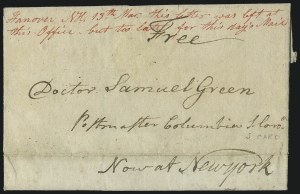 Hanover NH. 13th Mar. this letter was left at
this Office. but too late for this days Mail
Free
Doctor Samuel Green
Postmaster Columbia S. Caro.
Now at Newyork